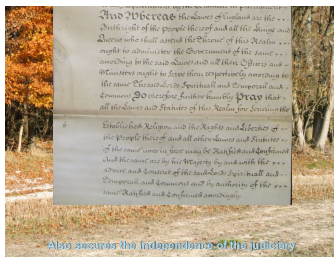 And Whereas the Lawes of England are the
Birthright of the People thereof and all the Kings and
Queens who shall ascend the Throne of this Realm
ought to administer the Government of the same
according to the said Lawes and all their Officers and
Ministers ought to serve them respectively according to
the same The said Lords Spirituall and Temporall and
Commons Do therefore further humbly Pray that
all the Lawes and Statutes of this Realm for securing the
Established Religion and the Rights and Liberties of
the People thereof and all other Lawes and Statutes
of the same now in force may be Ratified and Confirmed
And the same are by his Majesty by and with the
advice and Consent of the said Lords Spirituall and
Temporall and Commons and by authority of the
same Ratified and Confirmed accordingly.
Also secures the independence of the judiciary